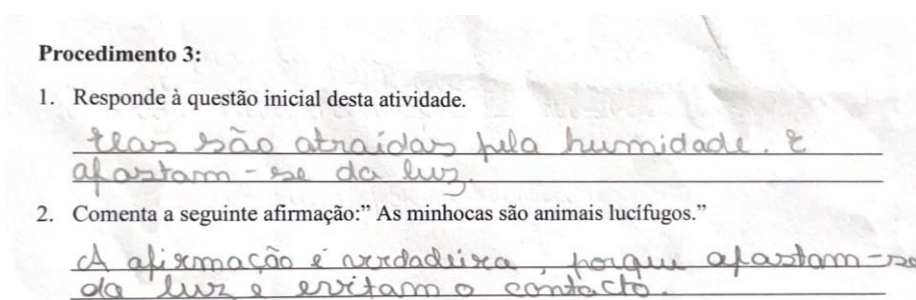 Procedimento 3:
1. Responde à questão inicial desta atividade.
Elas são atraídas pela humidade. E
afastam-se da luz.
2. Comenta a seguinte afirmação:” As minhocas são animais lucífugos.”
A afirmação é verdadeira, porque afastam-se
da luz e evitam o contacto.